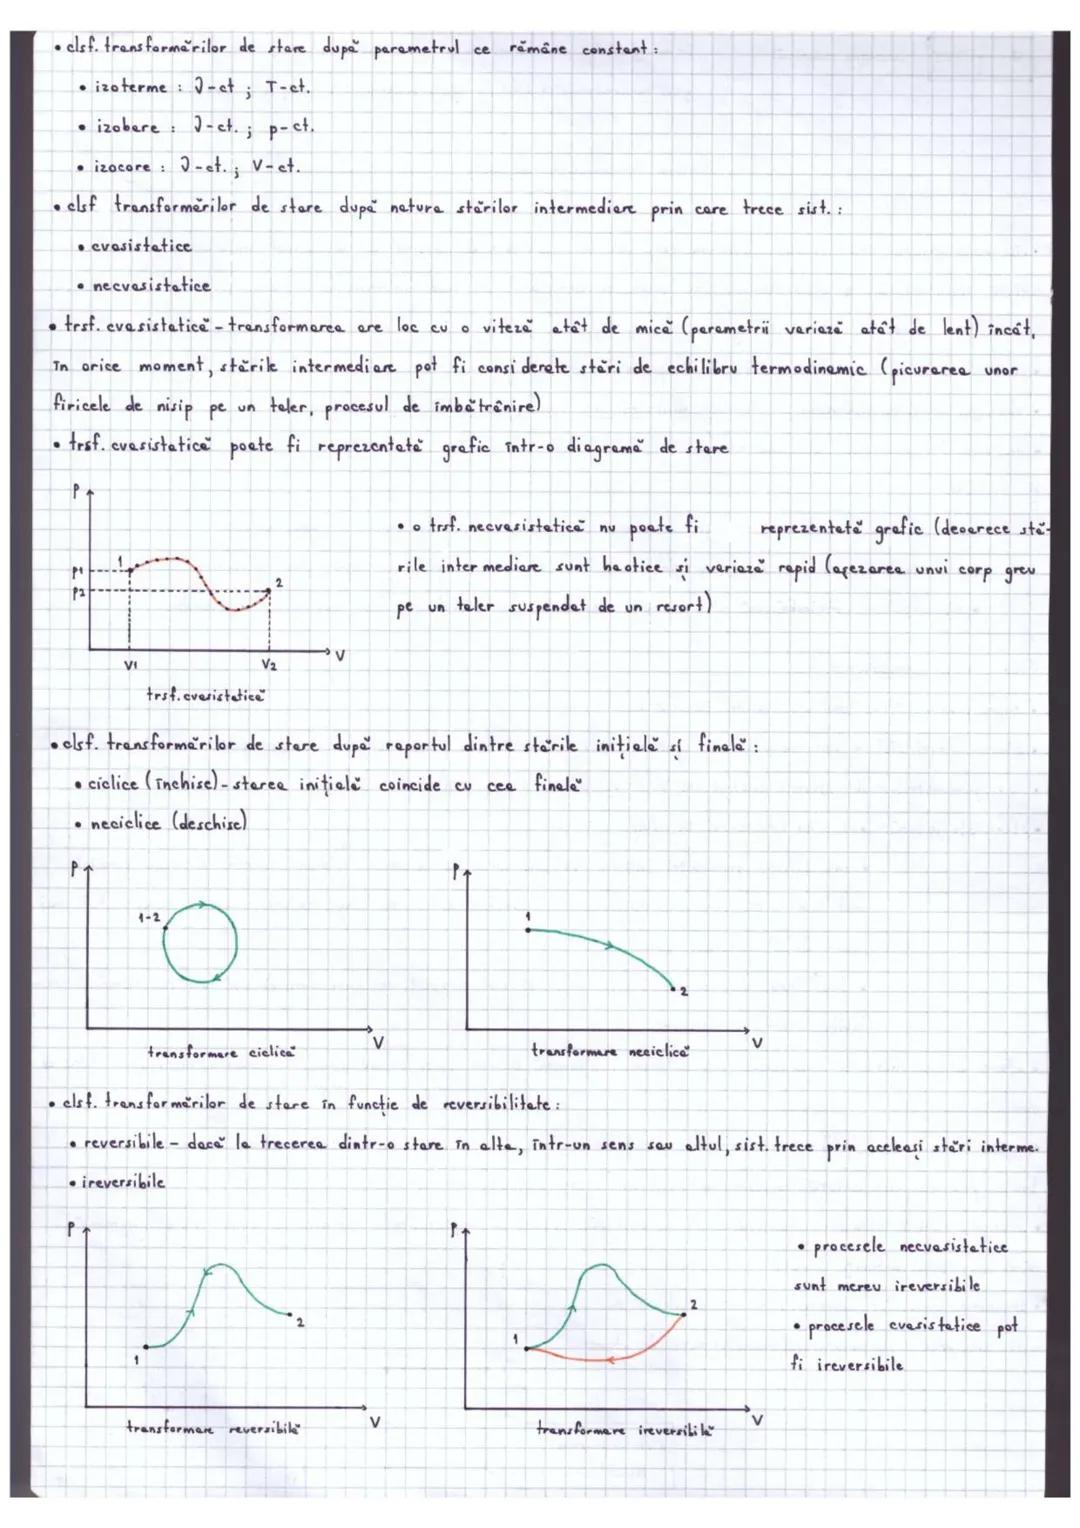 • clsf. transformărilor de stare după parametrul ce rămâne constant :
• izoterme : ϑ-ct ; T-ct.
• izobare : ϑ-ct. ; p-ct.
• izocore : ϑ-ct. ; V-ct.
• clsf transformărilor de stare după natura stărilor intermediare prin care trece sist. :
• cvasistatice
• necvasistatice
• trsf. cvasistatică - transformarea are loc cu o viteză atât de mică (parametrii variază atât de lent) încât,
în orice moment, stările intermediare pot fi considerate stări de echilibru termodinamic (picurarea unor
firicele de nisip pe un taler, procesul de îmbătrânire)
• trsf. cvasistatică poate fi reprezentată grafic într-o diagramă de stare
P
1
P1
P2
2
V1
V2
V
trsf. cvasistatică
• o trsf. necvasistatică nu poate fi reprezentată grafic (deoarece stă-
rile intermediare sunt haotice și variază rapid (așezarea unui corp greu
pe un taler suspendat de un resort)
• clsf. transformărilor de stare după raportul dintre stările inițială și finală :
• ciclice (închise) - starea inițială coincide cu cea finală
• neciclice (deschise)
P
1-2
V
transformare ciclică
P
1
2
V
transformare neciclică
• clsf. transformărilor de stare în funcție de reversibilitate :
• reversibile - dacă la trecerea dintr-o stare în alta, într-un sens sau altul, sist. trece prin aceleași stări interme.
• ireversibile
P
1
2
V
transformare reversibilă
P
1
2
V
transformare ireversibilă
• procesele necvasistatice
sunt mereu ireversibile
• procesele cvasistatice pot
fi ireversibile